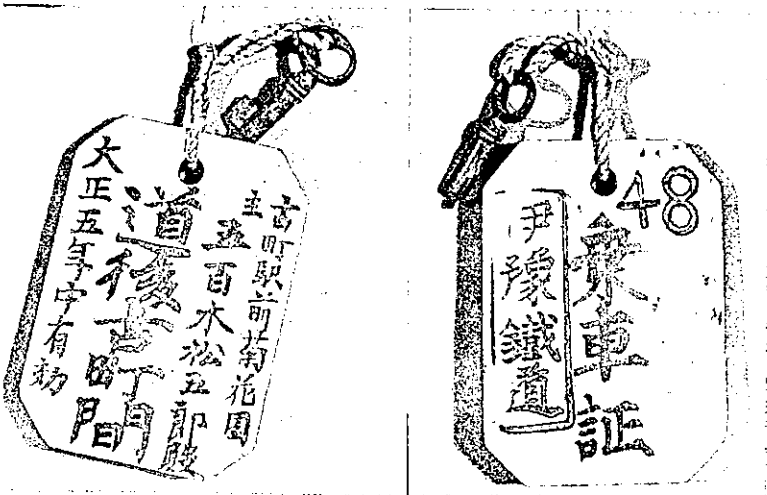 古町駅前菊花園
主 五百木松五郎殿
道後古町間
大正五年中有効
48
乗車証
伊豫鐵道